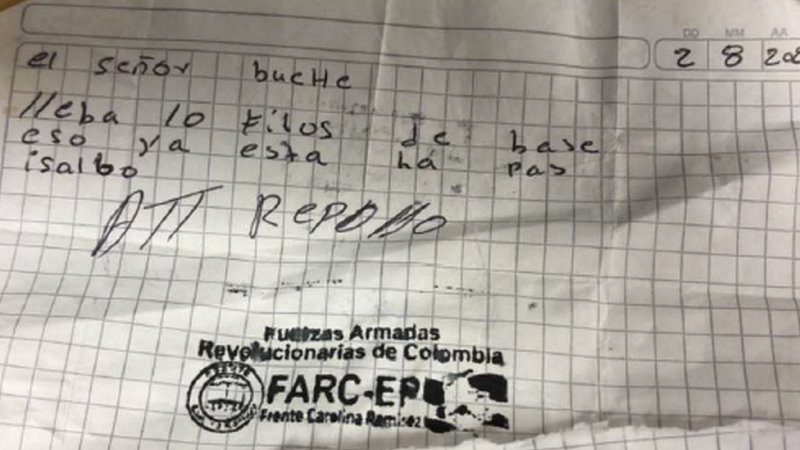 DD MM AA
2 8 202
el señor bucHe
lleba 10 kilos de base
eso ya esta há pas
isalbo
ATT Repollo
Fuerzas Armadas
Revolucionarias de Colombia
FARC-EP
Frente Carolina Ramirez